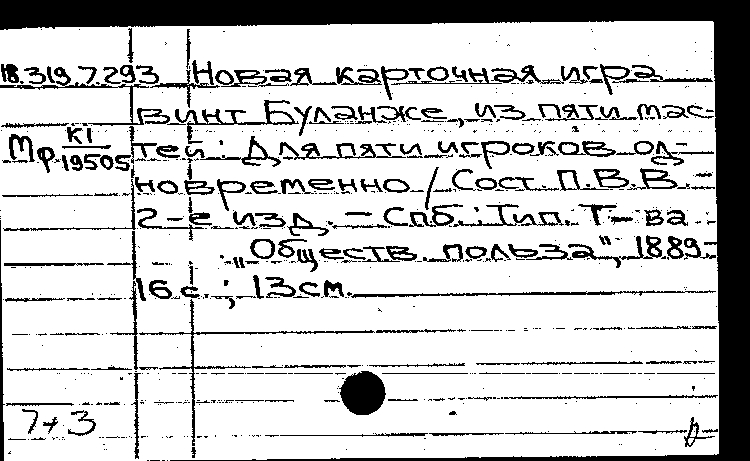 18.319.7.293 Новая карточная игра
винт Буланже, из пяти мас-
Мр К1/19505 тей: Для пяти игроков од-
новременно / Сост. П.В.В. -
2-е изд. - Спб.: Тип. Т-ва
„Обществ. польза", 1889.-
16 с.; 13 см.
7+3